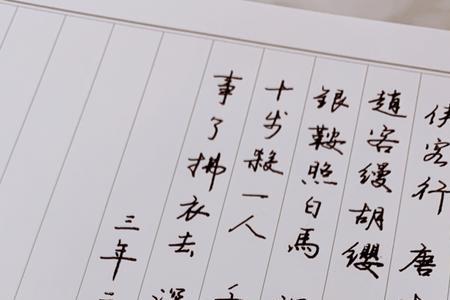 俠客行 唐
趙客縵胡纓
銀鞍照白馬
十步殺一人
事了拂衣去 深
三年